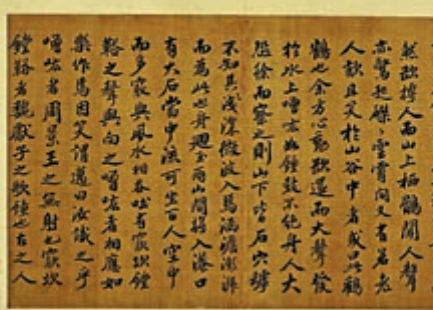 然欲搏人而山上栖鶻聞人聲
亦驚起磔磔雲霄間又有若老
人欬且笑於山谷中者或曰此鸛
鶴也余方心動欲還而大聲發
於水上噌吰如鐘鼓不絕舟人大
恐徐而察之則山下皆石穴罅
不知其淺深微波入焉涵澹澎湃
而為此也舟迴至兩山間將入港口
有大石當中流可坐百人空中
而多竅與風水相吞吐有窾坎鏜
鞳之聲與向之噌吰者相應如
樂作焉因笑謂邁曰汝識之乎
噌吰者周景王之無射也窾坎
鏜鞳者魏獻子之歌鍾也古之人